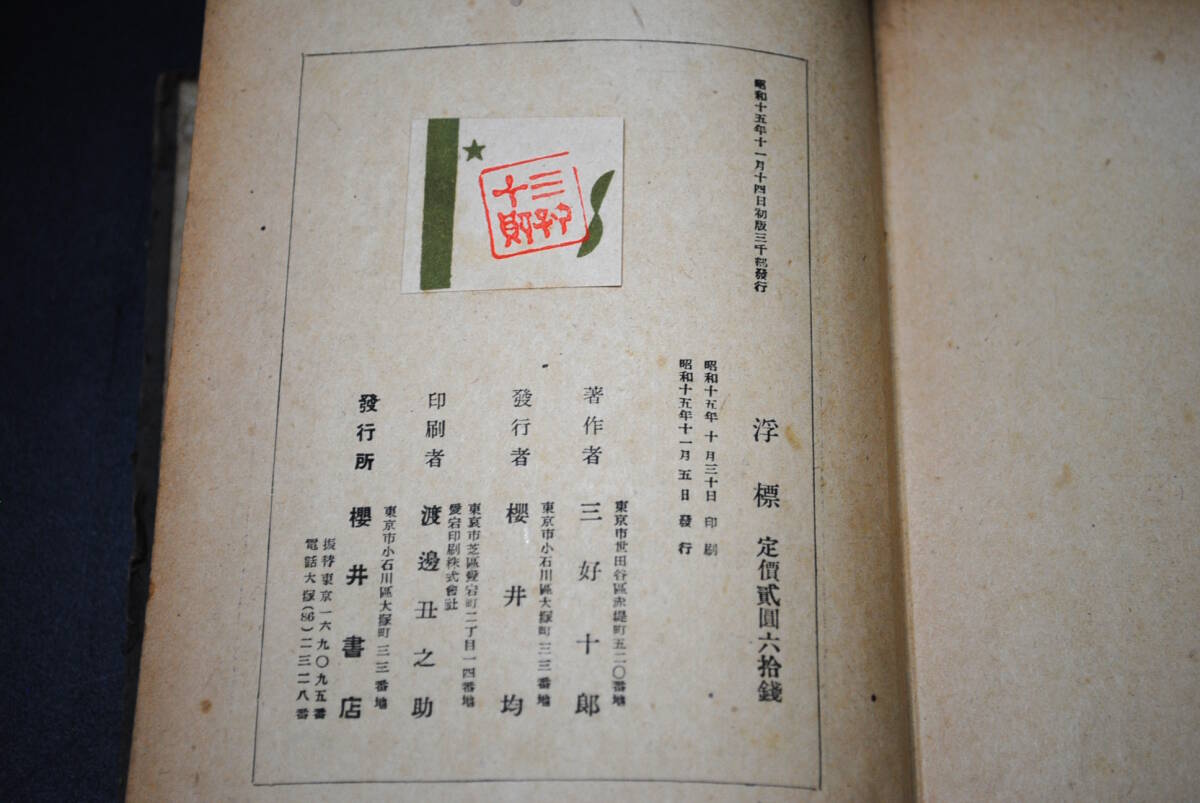 昭和十五年十一月十四日初版三千部發行
浮標 定價貳圓六拾錢
昭和十五年十月三十日印刷
昭和十五年十一月五日發行
東京市世田谷區赤堤町五二〇番地
著作者 三好十郎
東京市小石川區大塚町三三番地
發行者 櫻井均
東京市芝區愛宕町二丁目一四番地
愛宕印刷株式會社
印刷者 渡邊丑之助
東京市小石川區大塚町三三番地
發行所 櫻井書店
振替東京一六九〇九五番
電話大塚(86)二三二八番